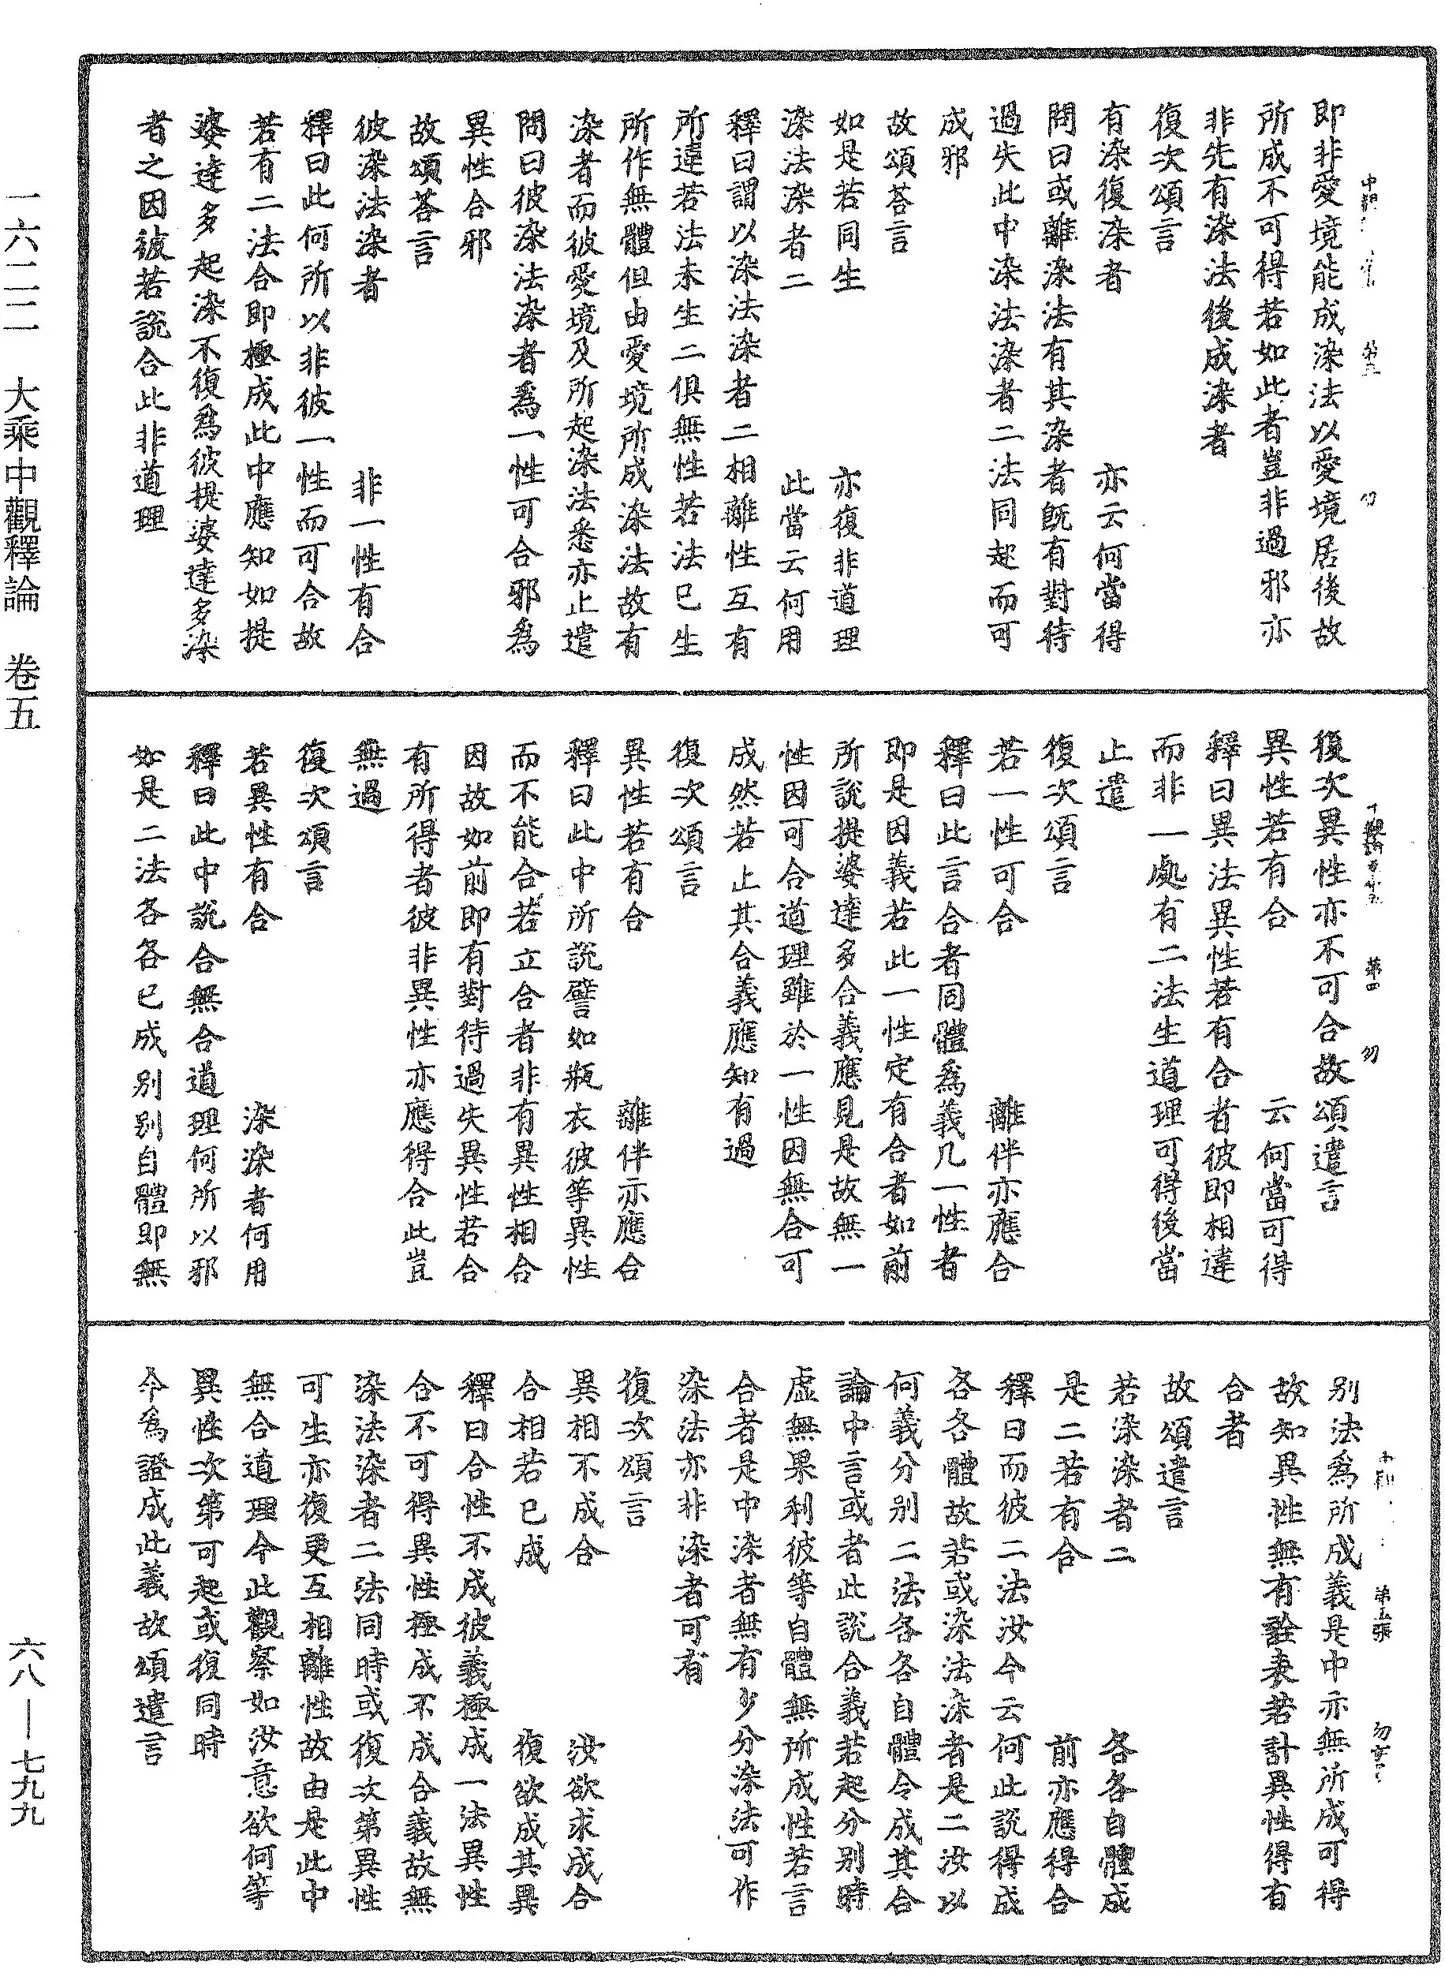 即非愛境能成染法以愛境居後故
所成不可得若如此者豈非過邪亦
非先有染法後成染者
復次頌言
有染復染者　亦云何當得
問曰或離染法有其染者旣有對待
過失此中染法染者二法同起而可
成邪
故頌荅言
如是若同生　亦復非道理
染法染者二　此當云何用
釋曰謂以染法染者二相離性互有
所違若法未生二俱無性若法已生
所作無體但由愛境所成染法故有
染者而彼愛境及所起染法悉亦止遣
問曰彼染法染者爲一性可合邪爲
異性合邪
故頌荅言
彼染法染者　非一性有合
釋曰此何所以非彼一性而可合故
若有二法合即極成此中應知如提
婆達多起染不復爲彼提婆達多染
者之因彼若說合此非道理
第四
復次異性亦不可合故頌遣言
異性若有合　云何當可得
釋曰異法異性若有合者彼即相違
而非一處有二法生道理可得後當
止遣
復次頌言
若一性可合　離伴亦應合
釋曰此言合者同體爲義凡一性者
即是因義若此一性定有合者如前
所說提婆達多合義應見是故無一
性因可合道理雖於一性因無合可
成然若止其合義應知有過
復次頌言
異性若有合　離伴亦應合
釋曰此中所說譬如瓶衣彼等異性
而不能合若立合者非有異性相合
因故如前即有對待過失異性若合
有所得者彼非異性亦應得合此豈
無過
復次頌言
若異性有合　染染者何用
釋曰此中說合無合道理何所以邪
如是二法各各已成別別自體即無
第五張
別法爲所成義是中亦無所成可得
故知異性無有詮表若計異性得有
合者
故頌遣言
若染染者二　各各自體成
是二若有合　前亦應得合
釋曰而彼二法汝今云何此說得成
各各體故若或染法染者是二汝以
何義分別二法各各自體令成其合
論中言或者此說合義若起分別時
虛無果利彼等自體無所成性若言
合者是中染者無有少分染法可作
染法亦非染者可有
復次頌言
異相不成合　汝欲求成合
合相若已成　復欲成其異
釋曰合性不成彼義極成一法異性
合不可得異性極成不成合義故無
染法染者二法同時或復次第異性
可生亦復更互相離性故由是此中
無合道理今此觀察如汝意欲何等
異性次第可起或復同時
今爲證成此義故頌遣言
一六二二　大乘中觀釋論　卷五
六八—七九九